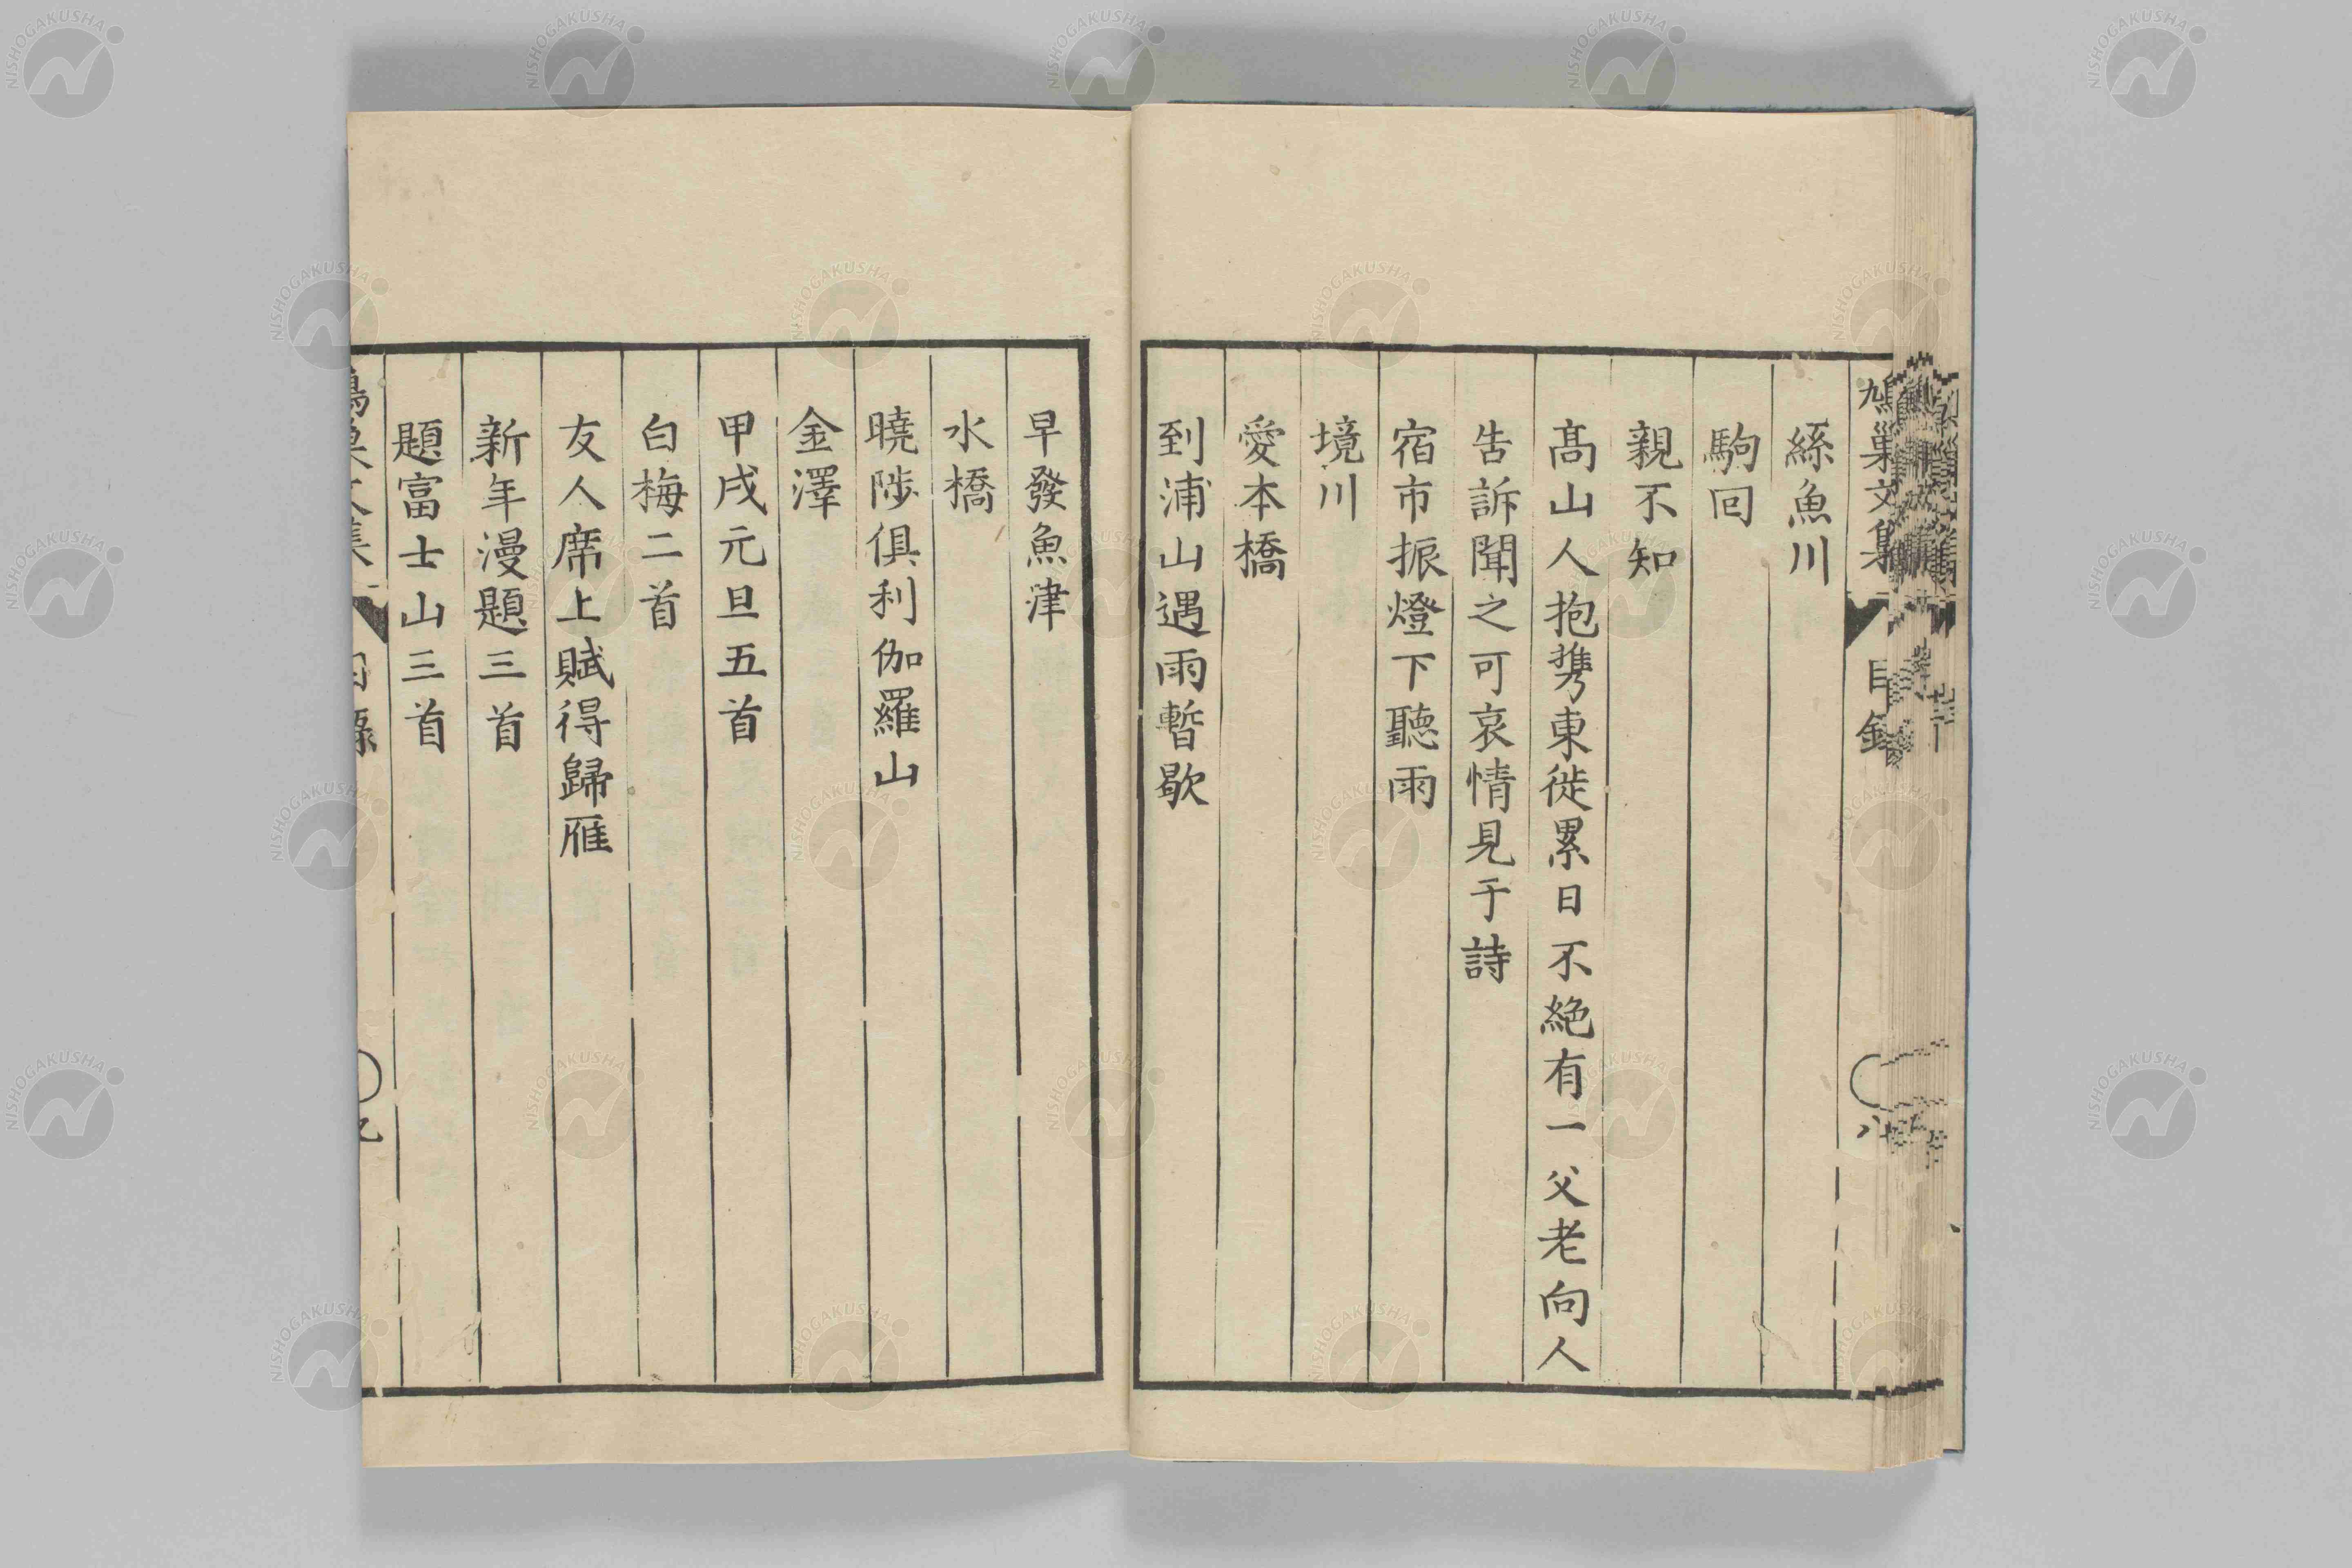 鳩巢文集 目錄 八
絲魚川
駒回
親不知
髙山人抱携東徙累日不絕有一父老向人
告訴聞之可哀情見于詩
宿市振燈下聽雨
境川
愛本橋
到浦山遇雨暫歇
早發魚津
水橋
曉陟俱利伽羅山
金澤
甲戌元旦五首
白梅二首
友人席上賦得歸雁
新年漫題三首
題富士山三首
NISHOGAKUSHA